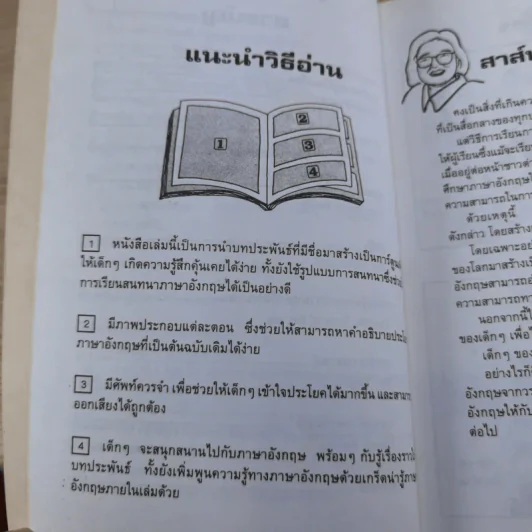 แนะนำวิธีอ่าน
1
2
3
4
1 หนังสือเล่มนี้เป็นการนำบทประพันธ์ที่มีชื่อมาสร้างเป็นการ์ตูน
ให้เด็กๆ เกิดความรู้สึกคุ้นเคยได้ง่าย ทั้งยังใช้รูปแบบการสนทนาซึ่งช่วย
การเรียนสนทนาภาษาอังกฤษได้เป็นอย่างดี
2 มีภาพประกอบแต่ละตอน ซึ่งช่วยให้สามารถหาคำอธิบายประโยค
ภาษาอังกฤษที่เป็นต้นฉบับเดิมได้ง่าย
3 มีศัพท์ควรจำ เพื่อช่วยให้เด็กๆ เข้าใจประโยคได้มากขึ้น และสามาร
ออกเสียงได้ถูกต้อง
4 เด็กๆ จะสนุกสนานไปกับภาษาอังกฤษ พร้อมๆ กับรู้เรื่องราว
บทประพันธ์ ทั้งยังเพิ่มพูนความรู้ทางภาษาอังกฤษด้วยเกร็ดน่ารู้ภา
อังกฤษภายในเล่มด้วย
สาส์
คงเป็นสิ่งที่เกินคว
ที่เป็นสื่อกลางของทุก
แต่วิธีการเรียนกา
ให้ผู้เรียนซึ่งแม้จะเรีย
เมื่ออยู่ต่อหน้าชาวต่า
ศึกษาภาษาอังกฤษได้
ความสามารถในการ
ด้วยเหตุนี้
ดังกล่าว โดยสร้าง
โดยเฉพาะอย่
ของโลกมาสร้างเป็
อังกฤษสามารถ
ความสามารถทา
นอกจากนี้
ของเด็กๆ เพื่อ
เด็กๆ ของ
อย่างไรก็
อังกฤษจากวร
อังกฤษให้กับ
ต่อไป